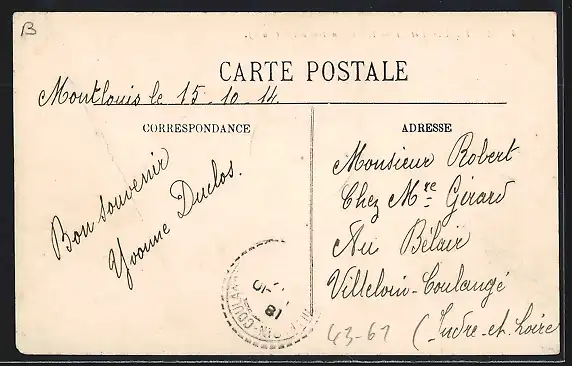 B
CARTE POSTALE
Montlouis le 15.10.14
CORRESPONDANCE
Bon souvenir
Yvonne Duclos.
ADRESSE
Monsieur Robert
Chez Mre Girard
Au Bélair
Villeloin-Coulangé
(Indre-et-Loire
43-61